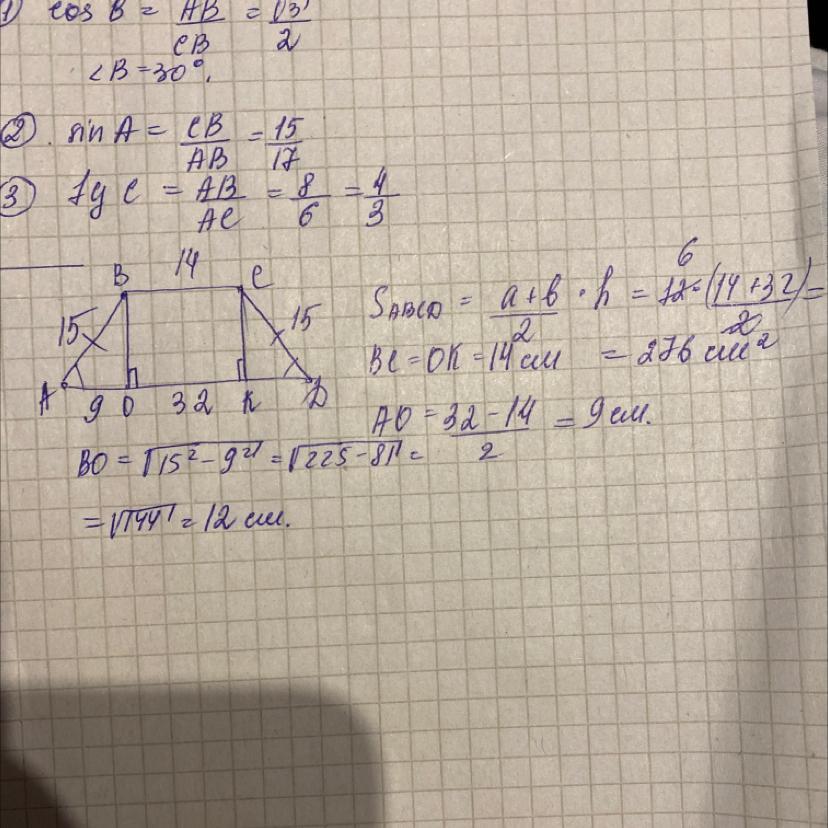 1) cos B = AB/CB = √3/2
∠B = 30°.
2. sin A = CB/AB = 15/17
3 tg C = AB/AC = 8/6 = 4/3
B 14 C
15 15
A 9 O 32 K D
S ABCD = a+b/2 · h = 12 6 · (14+32)/2 =
BC = OK = 14 см = 276 см²
AO = 32-14/2 = 9 см.
BO = √15²-9² = √225-81 =
= √144 = 12 см.